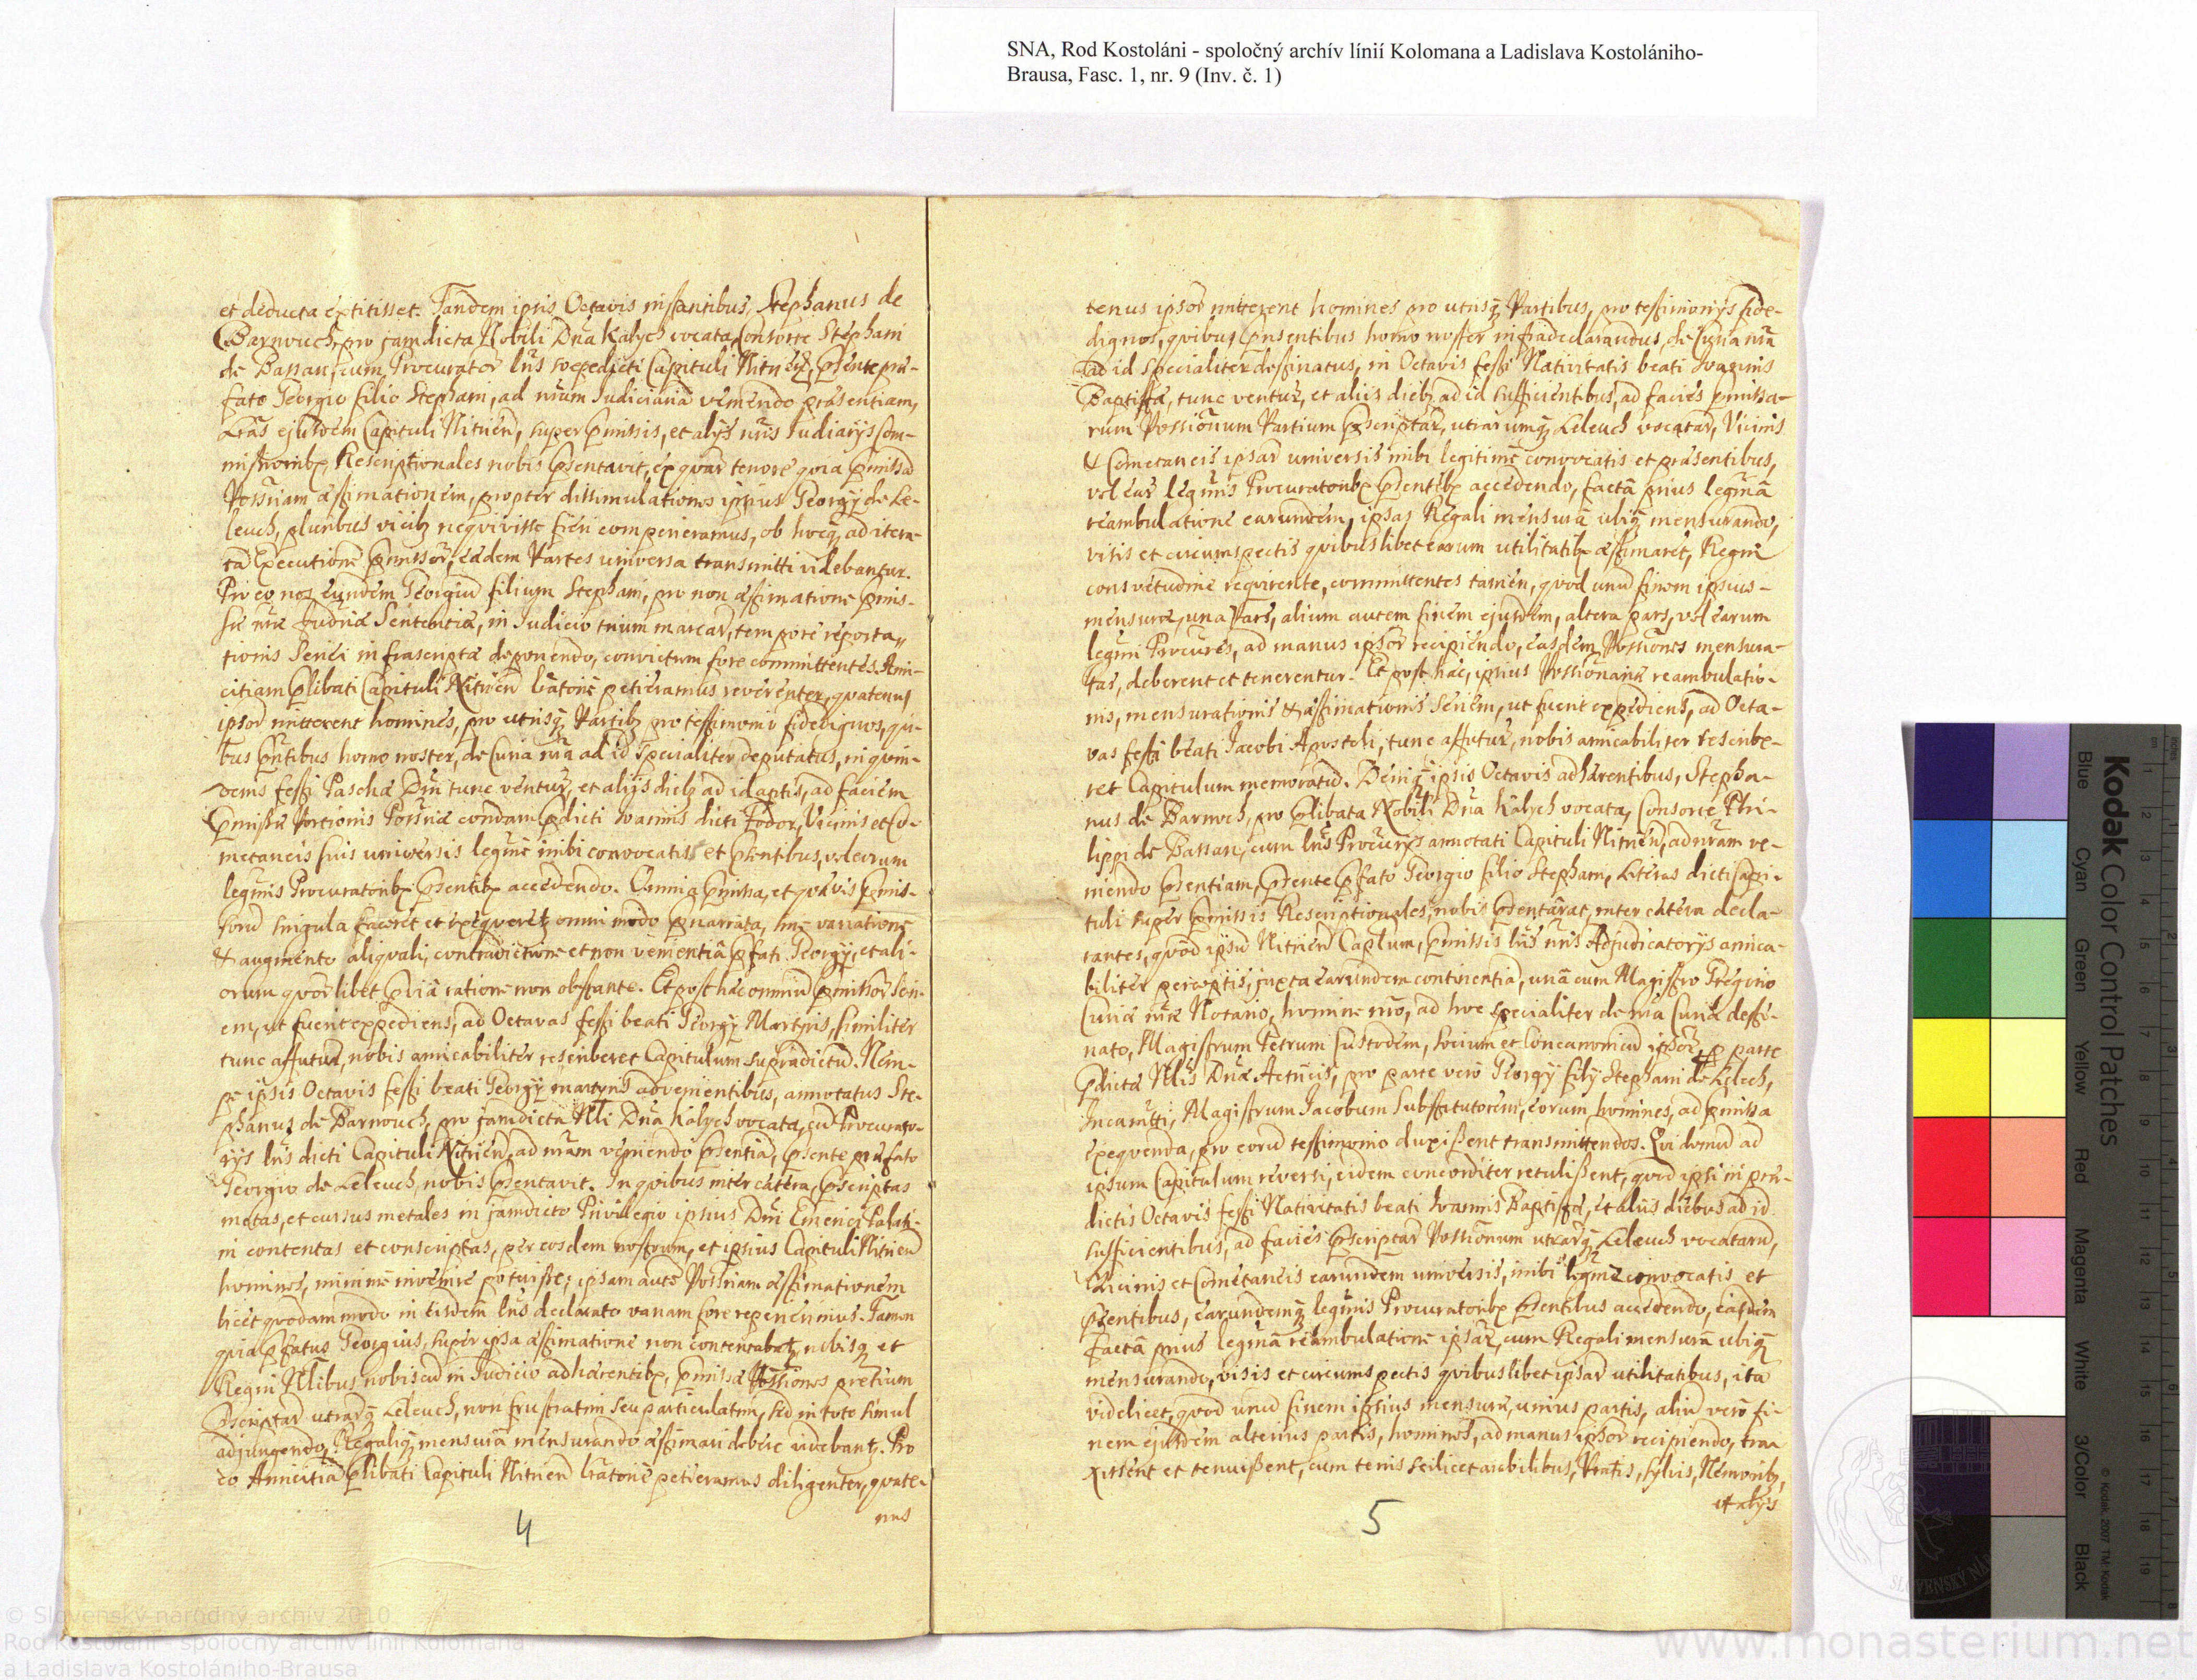 SNA, Rod Kostoláni - spoločný archív línií Kolomana a Ladislava Kostolániho-
Brausa, Fasc. 1, nr. 9 (Inv. č. 1)
et deducta extitisset. Tandem ipsis Octavis instantibus, Stephanus de
Barnouch, pro jamdicta Nobili Dña Kalych vocata Consorte Stephani
de Bassan, cum Procurator lris sæpedicti Capituli Nitrień, pñte præ-
fato Georgio filio Stephani, ad nram Judiciariã veniendo præsentiam,
Lras ejusdem Capituli Nitrień, super pmissis, et alys nris Judiarijs Com-
missionibꝫ Rescriptionales nobis pñsentavit, ex quar tenore quia pmissã
Possriam æstimationem, propter dissimulationes ipsius Georgij de Le-
leuch, pluribus vicibꝫ nequivisse fieri compereramus, ob hocqꝫ ad itera-
tã Executionẽ pmissor, eædem Partes universæ transmitti videbantur.
Pro eo nos eundem Georgiũ filium Stephani, pro non æstimatione pmis-
sæ nræ Judriæ Sententiæ, in Judicio trium marcar, tempore reporta„
tionis Seriei infrascriptæ deponendo, convictum fore committentes. Ami-
citiam plibati Capituli Nitrień lratorie petieramus reverenter, quatenus
ipsor mitterent homines, pro utrisqꝫ Partibꝫ pro testimonio fidedignos, qui-
bus pñtibus homo noster, de Curia nra ad id specialiter deputatus, in quin-
denis festi Paschæ Dñi tunc ventur, et alijs diebꝫ ad id aptis, ad faciem
pmissæ Portionis Possriæ condam pdicti Ioannis dicti Fodor, Vicinis et Co-
metaneis suis universis legitime inibi convocatis et pñtibus, vel eorum
legmis Procuratoribꝫ pñsentibꝫ accedendo. Omnia pmissa, et quævis pmis-
sorũ singula faceret et exequeretꝫ omni modo pnarrata, sine variatione
& augmento aliquali, contradictione et non venientiã pfati Georgij, et ali-
orum quorlibet pviã ratione non obstante. Et post hæc omniũ pmissor Seri-
em, ut fuerit expediens, ad Octavas festi beati Georgij Martyris, similiter
tunc affutur, nobis amicabiliter rescriberet Capitulum supradictũ. Nem-
pe ipsis Octavis festi beati Georgij martyris advenientibus, annotatus Ste-
phanus de Barnouch, pro jamdicta Nli Dña Kalych vocata, cũ Procurato-
rijs lris dicti Capituli Nitrień, ad nram veniendo pñsentiã, pñsente præfato
Georgio de Leleuch, nobis pñsentavit. In quibus inter cætera, pscriptas
metas, et cursus metales in jamdicto Privilegio ipsius Dñi Emerici Palati-
ni contentas et conscriptas, per eosdem nostrum, et ipsius Capituli Nitrień
homines, minime invenire potuisse; ipsam autẽ Possriam æstimationem
licet quodammodo in eisdem lris declarato vanam fore reperierimus. Tamen
quia pfatus Georgius, super ipsa æstimatione non contentabatꝫ, nobisqꝫ et
Regni Nlibus nobiscũ in Judicio adhærentibꝫ, pmissæ Possiones pretium
pscriptar utrarqꝫ Leleuch, non frustratim seu particulatim, sed in toto simul
adjungendo, Regaliqꝫ mensurã mensurando æstimari debere videbantꝫ. Pro
eo Amicitiã plibati Capituli Nitrień lratorie petieramus diligenter, quate-
nus
4
tenus ipsor mitterent homines pro utrisqꝫ Partibus, pro testimonijs fide-
dignos, quibus pñsentibus homo noster infradeclarandus, de Curia nra
ad id specialiter destinatus, in Octavis festi Nativitatis beati Ioannis
Baptistæ, tunc ventur, et aliis diebꝫ ad id sufficientibus, ad facies pmissa-
rum Possionum Partium pscriptar, utrarumqꝫ Leleuch vocatar, Vicinis
& Cometaneis ipsar universis inibi legitime convocatis et præsentibus,
vel ear legitimis Procuratoribꝫ pñsentibꝫ accedendo, factã prius legitmã
reambulatione earundem, ipsas Regali mensurã ubiqꝫ mensurando,
visis et circumspectis quibuslibet earum utilitatibꝫ æstimaret, Regni
consvetudine requirente, committentes tamen, quod unũ finem ipsius-
mensuræ, una Pars, alium autem finem ejusdem, altera pars, vel earum
legmi Procures, ad manus ipsor recipiendo, easdem Possiones mensura-
tas, deberent et tenerentur. Et post hæc, ipsius Possionariæ reambulatio-
nis, mensurationis & æstimationis Seriem, ut fuerit expediens, ad Octa-
vas festi beati Jacobi Apostoli, tunc affutur, nobis amicabiliter rescribe-
ret Capitulum memoratũ. Deniqꝫ ipsis Octavis adhærentibus, Stepha-
nus de Barnoch, pro plibata Nobili Dña Kalych vocata, Consorte Phi-
lippi de Bassan, cum lris Procurijs annotati Capituli Nitrień, ad nram ve-
niendo pñsentiam, pñsente pfato Georgio filio Stephani, Literas dicti Capi-
tuli super pmissis Rescriptionales, nobis pñsentarat, inter cætera decla-
rantes, quod ipsũ Nitrień Caplum, pmissis lris nris Adjudicatorijs amica-
biliter perceptis, juxta earundem continentiã, unã cum Magistro Gregorio
Curiæ nræ Notario, homine nro, ad hoc specialiter de nra Curia desti-
nato, Magistrum Petrum Custodem, socium et Concanonicũ ipsor, p parte
pdictæ Nlis Dñæ Actricis, pro parte vero Georgij filij Stephani de Lelech,
Incamtti, Magistrum Jacobum Substitutorem, eorum homines, ad pmissa
exequenda, pro eorũ testimonio duxissent transmittendos. Qui domũ ad
ipsum Capitulum reversi, eidem concorditer retulissent, quod ipsi in præ-
dictis Octavis festi Nativitatis beati Ioannis Baptistæ, et aliis diebus ad id
sufficientibus, ad facies pscriptar Possionum utrarqꝫ Leleuch vocatarũ,
Vicinis et Cometaneis earundem universis, inibi legme convocatis et
pñsentibus, earundemqꝫ legmis Procuratoribꝫ pñsentibus accedendo, easdem
factã prius legmã reambulatione ipsar, cum Regali mensurã ubiqꝫ
mensurando, visis et circumspectis quibuslibet ipsar utilitatibus, ita
videlicet, quod unũ finem ipsius mensuræ, unius partis, aliũ vero fi-
nem ejusdem alterius partis, homines, ad manus ipsor recipiendo, tra-
xissent et tenuissent, cum terris scilicet arabilibus, Pratis, sylvis, Nemoribꝫ,
et alijs
5
Kodak Color Control Patches
Blue Cyan Green Yellow Red Magenta White 3/Color Black
© Kodak, 2007 TM: Kodak
© Slovenský národný archív 2010
Rod Kostoláni - spoločný archív línií Kolomana
a Ladislava Kostolániho-Brausa
www.monasterium.net